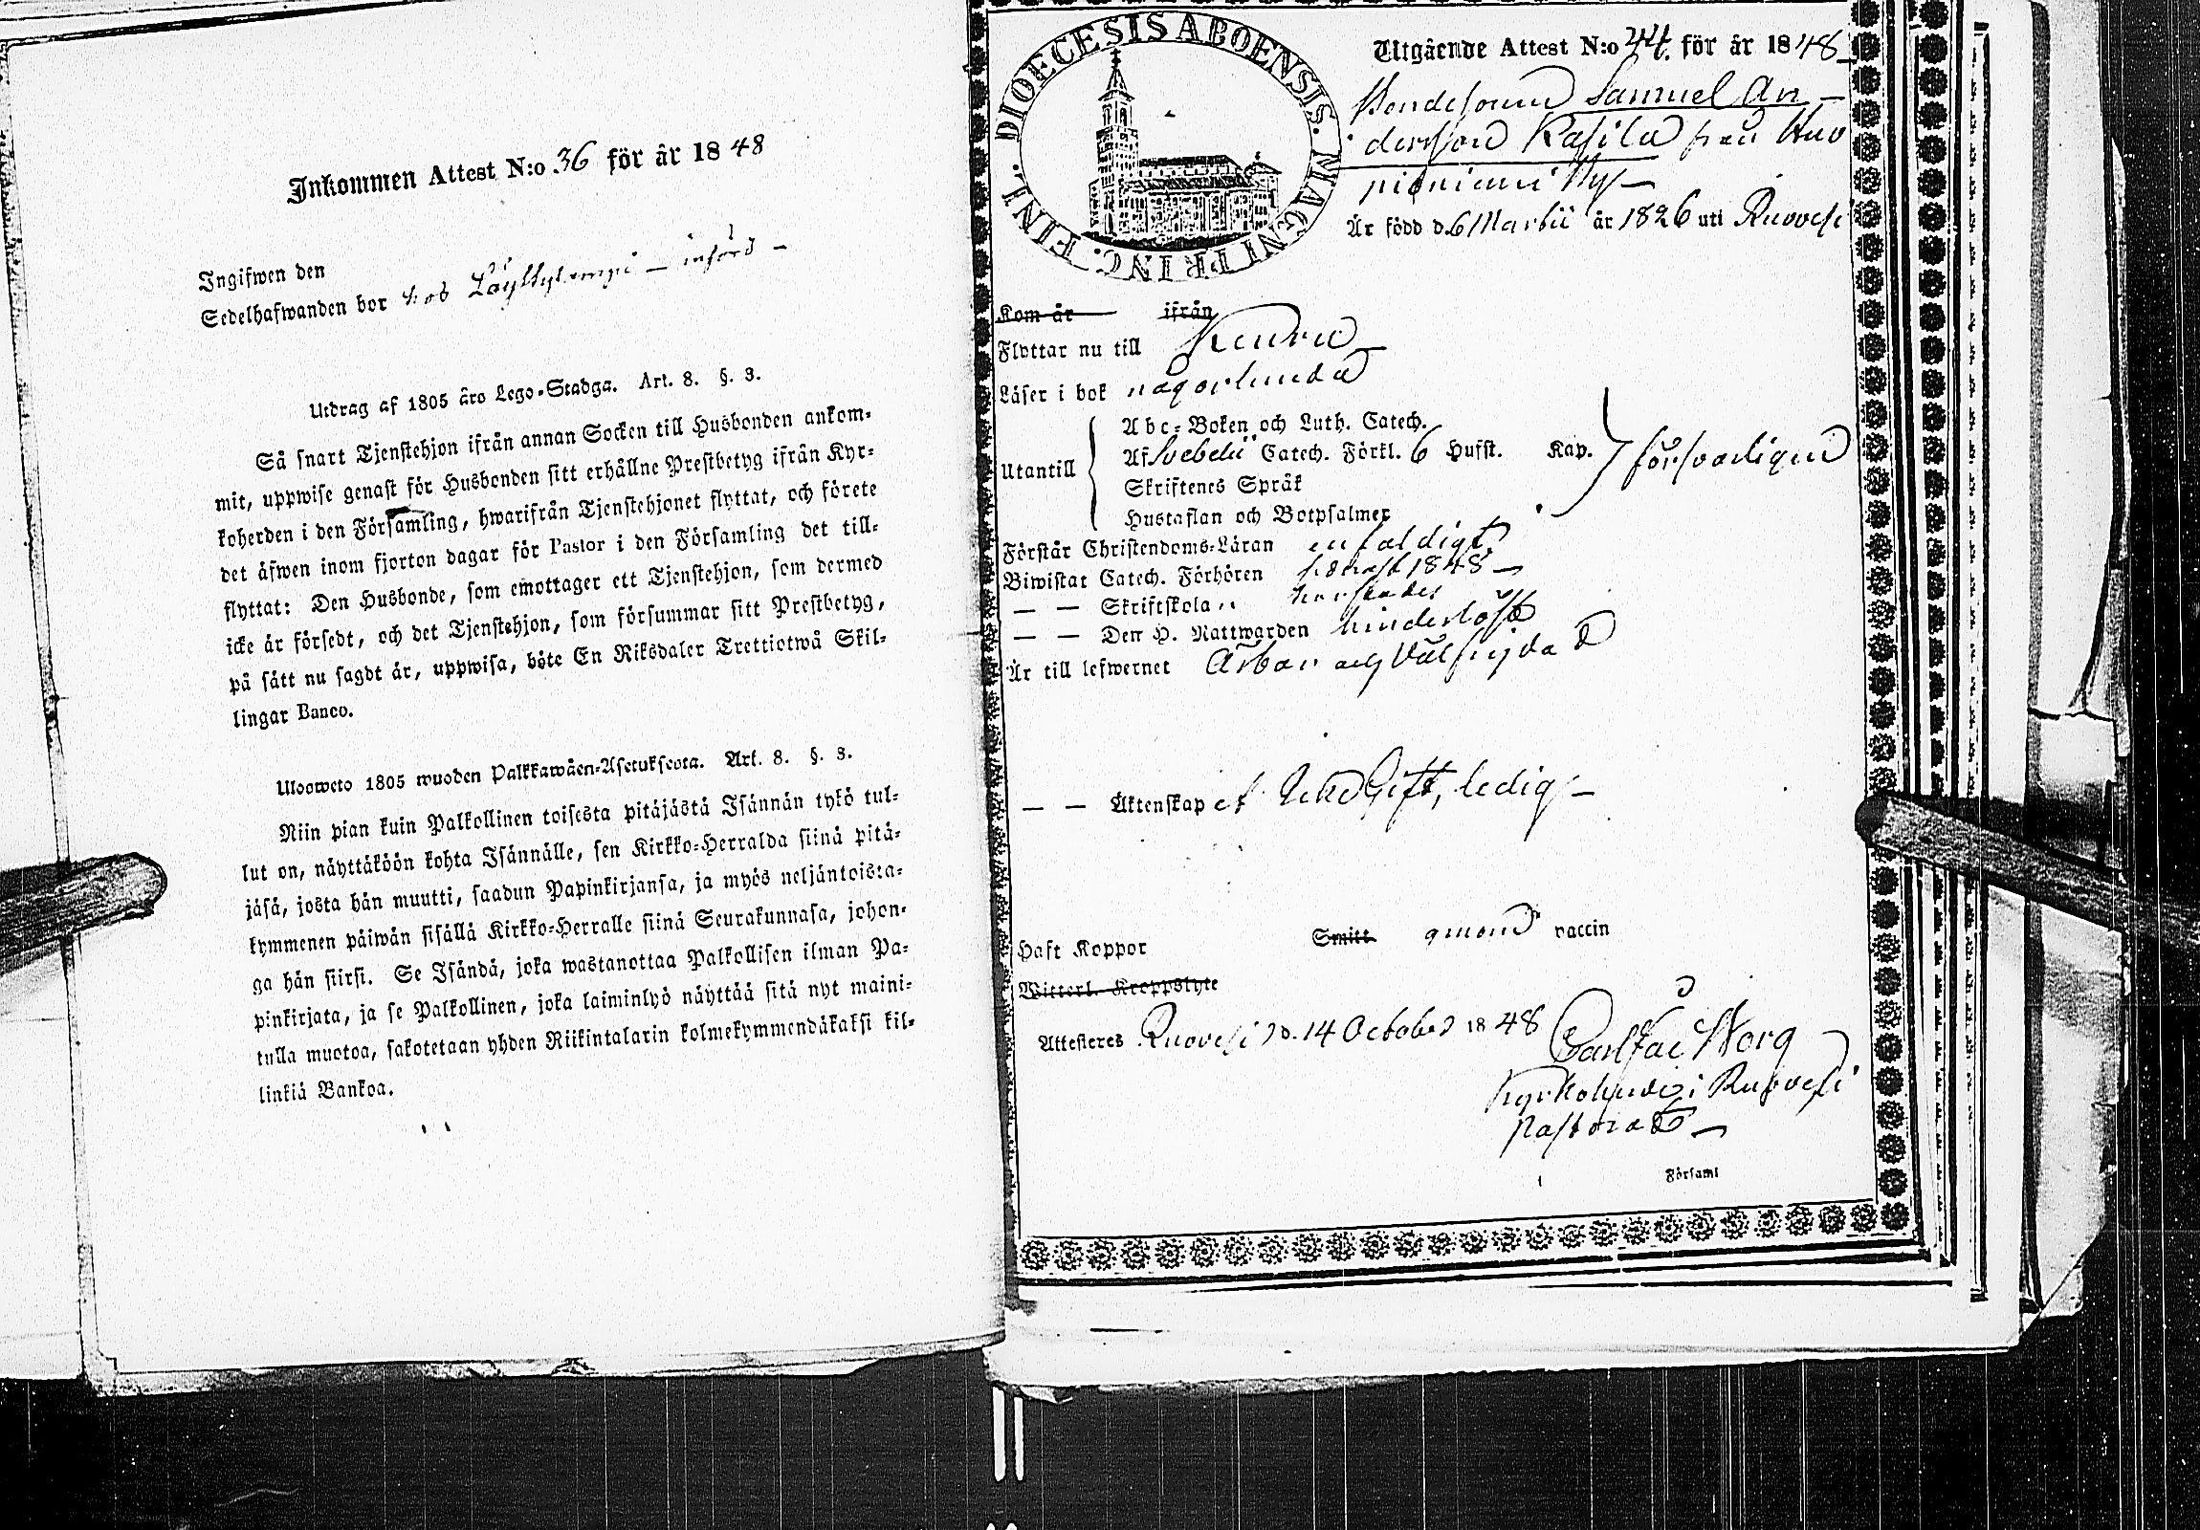 Inkommen Attest N:o 36 för år 1848
Ingifwen den
Sedelhafwanden bor hos Löytylampi — införd —
Utdrag af 1805 års Lego-Stadga. Art. 8. §. 3.
Så snart Tjenstehjon ifrån annan Socken till Husbonden ankom-
mit, uppwise genast för Husbonden sitt erhållne Prestbetyg ifrån Kyr-
koherden i den Församling, hwarifrån Tjenstehjonet flyttat, och förete
det äfwen inom fjorton dagar för Pastor i den Församling det till-
flyttat: Den Husbonde, som emottager ett Tjenstehjon, som dermed
icke är försedt, och det Tjenstehjon, som försummar sitt Prestbetyg,
på sätt nu sagdt är, uppwisa, böte En Riksdaler Trettiotwå Skil-
lingar Banco.
Uloosweto 1805 wuoden Palkkawäen-Asetuksesta. Art. 8. §. 3.
Niin pian kuin Palkollinen toisesta pitäjästä Isännän tykö tul-
lut on, näyttäköön kohta Isännälle, sen Kirkko-Herralda siinä pitä-
jäsä, josta hän muutti, saadun Papinkirjansa, ja myös neljäntoista-
kymmenen päiwän sisällä Kirkko-Herralle siinä Seurakunnasa, johon-
ga hän siirsi. Se Isändä, joka wastanottaa Palkollisen ilman Pa-
pinkirjata, ja se Palkollinen, joka laiminlyö näyttää sitä nyt maini-
tulla muotoa, sakotetaan yhden Riikintalarin kolmekymmendäkaksi kil-
linkiä Bankoa.
DIOECESIS ABOENSIS. MAGNI PRINC. FINL.
Utgående Attest N:o 44. för år 1848
Bondesonen Samuel An-
dersson Kasila från
by
Är född d. 6 Martii år 1826 uti Ruovesi
Kom år ifrån
Flyttar nu till Keuru
Läser i bok någorlunda
Utantill
Abc-Boken och Luth. Catech.
Af Svebelii Catech. Förkl. 6 Hufst. Kap.
Skriftenes Språk
Hustaflan och Botpsalmer
försvarligen
Förstår Christendoms-Läran enfaldigt
Biwistat Catech. Förhören senast 1848
— — Skriftskolan
— — Den H. Nattwarden hinderlöst
Är till lefwernet Ärbar och välfrejdad
— — Äktenskap ej gift, ledig
Haft Koppor Smitt genom vaccin
Witterl. Kroppslyte
Attesteres Ruovesi d. 14 October 1848
Carl Jac Norg
Kyrkoherde i Ruovesi
Pastorat
Församl